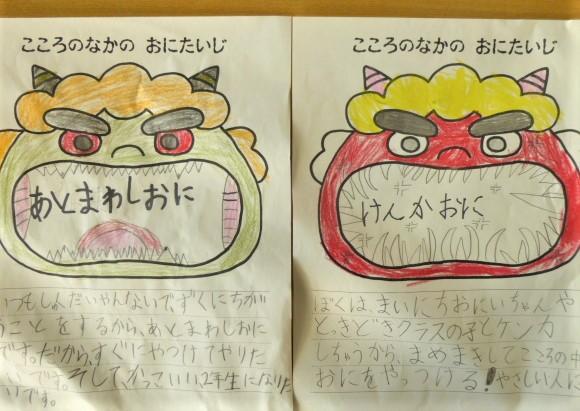 こころのなかの おにたいじ
あとまわしおに
いつもしゅくだいやんないで、すぐにちが
うことをするから、あとまわしおに
です。だから、すぐにやつけてやりた
いです。そして、かっこいい2年生になりた
いです。
こころのなかの おにたいじ
けんかおに
ぼくは、まいにちおにいちゃんや
ときどきクラスの子とケンカ
しちゃうから、まめまきしてこころの中
おにをやっつける!やさしい人に